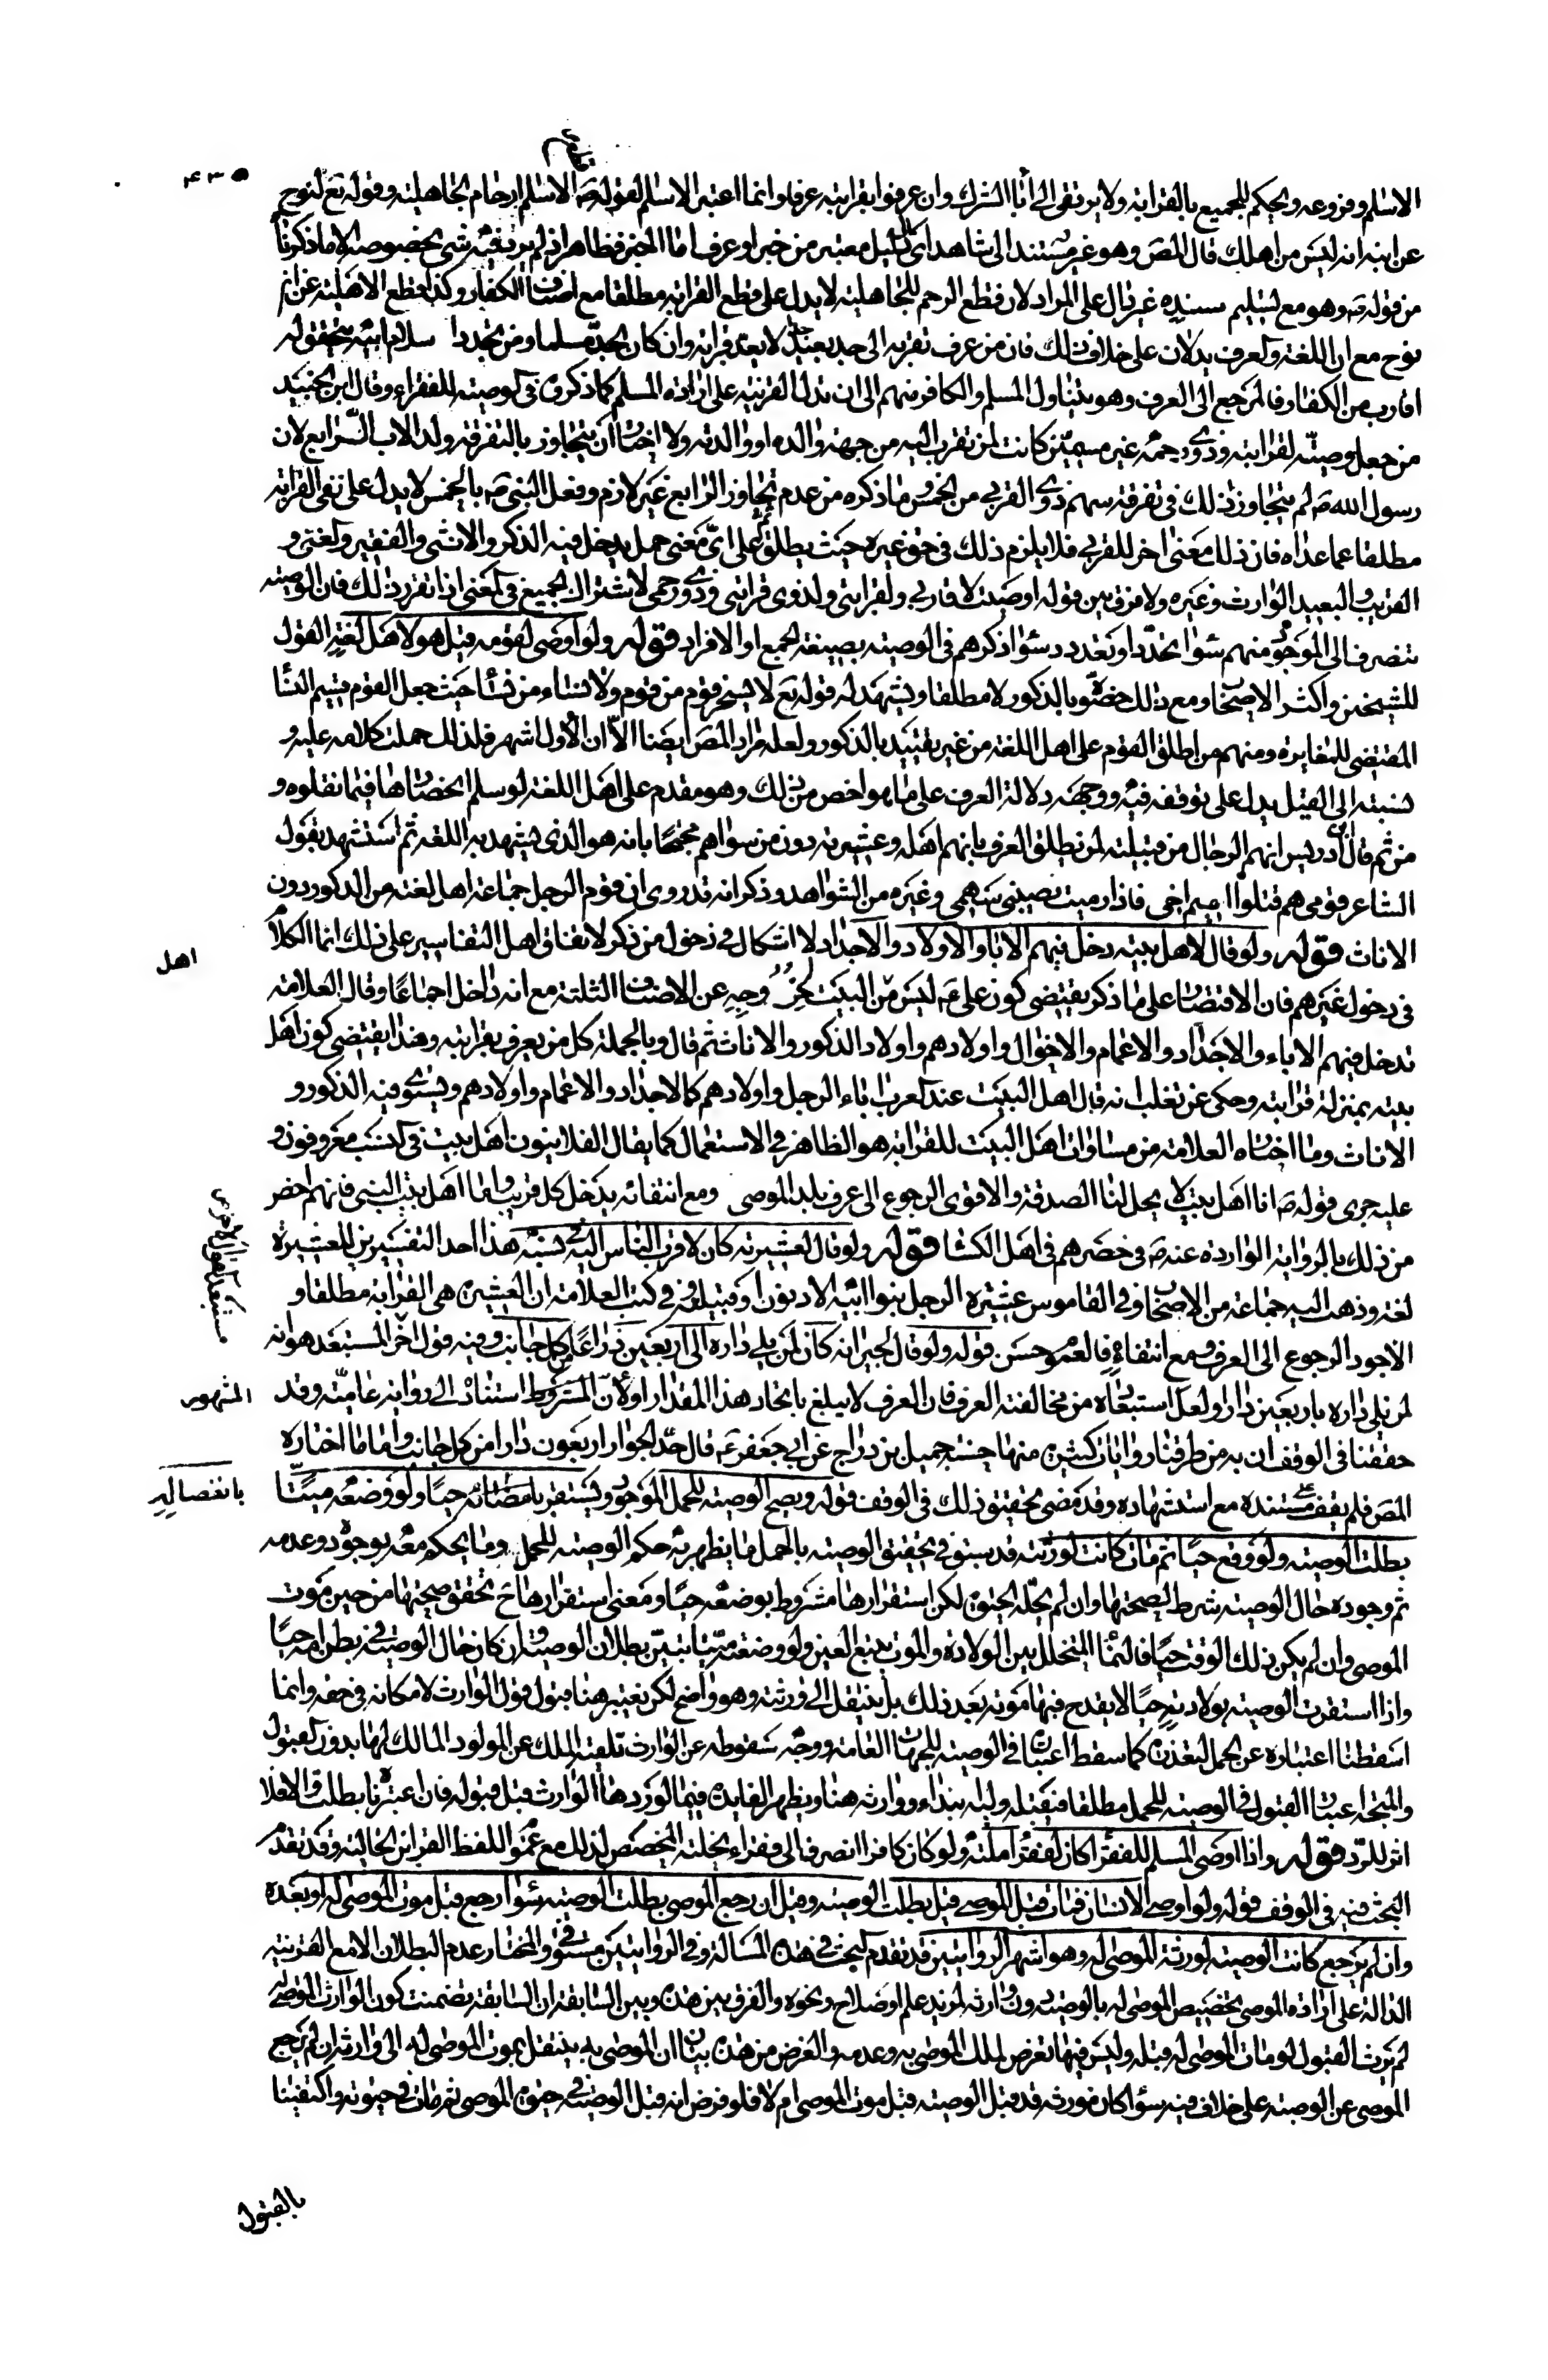 ۴۳۵
الاسلم وفروعه ويحكم للجميع بالقرابة ولا يرتقى الى اٰباء الشرك وان عرفوا بقرابته عرفا وانما اعتبر الاسلم لقوله ص الاسلم ارحام الجاهلية وقوله تع لنوح
عن ابنه انه ليس من اهلك قال المص وهو غير مستند الى شاهد اى دليل معتبر من خبر او عرف اما الخبر فظاهر اذ لم يرد فيه شى بخصوصه الا ما ذكرناه
من قوله ص وهو مع تسليم سنده غير دال على المراد لان قطع الرحم للجاهلية لا يدل على قطع القرابة مطلقا مع اصناف الكفار وكذا قطع الاهلية عن ابن
نوح مع ان اللغة والعرف يدلان على خلاف ذلك فان من عرف تقربه الى جد بعيد جدا لا يعد قرابة وان كان الجد مسلما ومن تجدد اسلام ابيه يتحقق له
اقارب من الكفار فالمرجع الى العرف وهو يتناول المسلم والكافر منهم الى ان تدل القرينة على ارادة المسلم كما ذكروى فى الوصية للفقراء وقال ابن الجنيد
من جعل وصيته لقرابته وذوى رحمه غير مسمين كانت لمن تقرب اليه من جهة والده او والدته ولا اختار ان يتجاوز بالتفرقة ولد الاب الرابع لان
رسول الله ص لم يتجاوز ذلك فى تفرقة سهم ذوى القربى من الخمس وما ذكره من عدم تجاوز الرابع غير لازم وفعل النبى ص بالخمس لا يدل على نفى القرابة
مطلقا عما عداه فان ذلك معنى اخر للقربى فلا يلزم ذلك فى حق غيره حيث يطلق ثم على اى معنى حمل يدخل فيه الذكر والانثى والفقير والغنى و
القريب والبعيد الوارث وغيره ولا فرق بين قوله اوصيت لاقاربى ولقرابتى ولذوى قرابتى وذوى رحمى لاشتراك الجميع فى المعنى اذا تقرر ذلك فان الوصية
تنصرف الى الموجود منهم سواء اتحد او تعدد وسواء ذكرهم فى الوصية بصيغة الجمع او الافراد قوله ولو اوصى لقومه قيل هو لاهل لغته القول
للشيخين واكثر الاصحاب ومع ذلك خصوه بالذكور لا مطلقا ويشهد له قوله تع لا يسخر قوم من قوم ولا نساء من نساء حيث جعل القوم قسيم النساء
المقتضى للمغايرة ومنهم من اطلق القوم على اهل اللغة من غير تقييد بالذكور ولعله مراد المص ايضا الا ان الاول اشهر فلذلك حملت كلامه عليه و
نسبته الى القيل يدل على توقفه فيه ووجهه دلالة العرف على ما هو اخص من ذلك وهو مقدم على اهل اللغة لو سلم انحصارها فيما نقلوه و
من ثم قال ابن ادريس انهم الرجال من قبيلته لمن يطلق العرف بانهم اهله وعشيرته دون من سواهم محتجا بانه هو الذى يشهد به اللغة ثم استشهد بقول
الشاعر قومى هم قتلوا اميم اخى فاذا رميت يصيبنى سهمى وغيره من الشواهد وذكر انه قد روى ان قوم الرجل جماعة اهل لغته من الذكور دون
الاناث قوله ولو قال لاهل بيته دخل فيهم الاباء والاولاد والاجداد لا اشكال فى دخول من ذكر لاتفاق اهل التفاسير على ذلك انما الكلام
اهل
فى دخول غيرهم فان الاقتصار على ما ذكر يقتضى كون على ع ليس من البيت لخروجه عن الاصناف الثلثة مع انه داخل اجماعا وقال العلامة
تدخل فيهم الاباء والاجداد والاعمام والاخوال واولادهم واولاد الذكور والاناث ثم قال وبالجملة كل من يعرف بقرابته وهذا يقتضى كون اهل
بيته بمنزلة قرابته وحكى عن تغلب انه قال اهل البيت عند العرب اباء الرجل واولادهم كالاجداد والاعمام واولادهم ويستوى فيه الذكور و
الاناث وما اختاره العلامة من مساواة اهل البيت للقرابة هو الظاهر فى الاستعمال كما يقال الفلانيون اهل بيت فى النسب معروفون و
عليه جرى قوله ص انا اهل بيت لا يحل لنا الصدقة والاقوى الرجوع الى عرف بلد الموصى ومع انتفائه يدخل كل قريب واما اهل بيت النبى فانهم اخص
من ذلك بالرواية الواردة عنه ص فى حصرهم فى اهل الكساء قوله ولو قال لعشيرته كان لاقرب الناس اليه فى نسبه هذا احد التفسيرين للعشيرة
لغة وذهب اليه جماعة من الاصحاب وفى القاموس عشيرة الرجل بنوا ابيه الادنون او قبيلته وفى كتب العلامة ان العشيرة هى القرابة مطلقا و
الاجود الرجوع الى العرف ومع انتفائه فالعموم حسن قوله ولو قال لجيرانه كان لمن يلى داره الى اربعين ذراعا من كل جانب وفيه قول اخر مستبعد هو انه
لمن يلى داره باربعين دارا ولعل استبعاده من مخالفته العرف فان العرف لا يبلغ باتحاد هذا المقدار او لان استناد الى رواية عامية وقد
المشهور
حققنا فى الوقف ان به من طرقنا روايات كثيرة منها حسنة جميل بن دراج عن ابى جعفر ع قال حد الجوار اربعون دارا من كل جانب واما ما اختاره
المص فلم يقف على مستنده مع اشتهاره وقد مضى تحقيق ذلك فى الوقف قوله ويصح الوصية للحمل الموجود ويستقر بانفصاله حيا ولو وضعه ميتا
بانفصاله
بطلت الوصية ولو وقع حيا ثم مات كانت لورثته قد سبق فى تحقيق الوصية بالحمل ما يظهر به حكم الوصية للحمل وما يحكم معه بوجوده وعدمه
ثم وجوده حال الوصية شرط لصحتها وان لم يحله الحيوة لكن استقرارها مشروط بوضعه حيا ومعنى استقرارها ح تحقق صحتها من حين موت
الموصى وان لم يكن ذلك الوقت حيا فالنماء المتخلل بين الولادة والموت يتبع العين ولو وضعته ميتا تبين بطلان الوصية وان كان حال الوصية فى بطن امه حيا
واذا استقرت الوصية بولادته حيا لا يقدح فيها موته بعد ذلك بل ينتقل الى ورثته وهو واضح لكن يعتبر هنا قبول الوارث لامكانه فى حقه وانما
اسقطنا اعتباره عن الحمل لتعذره كما سقط اعتباره فى الوصية للجهات العامة ووجه سقوطه عن الوارث تلقيه الملك عن المولود المالك لها بدون القبول
والمتجه اعتبار القبول فى الوصية للحمل مطلقا فيقبله وليه ابتداء ووارثه هنا ويظهر الفايدة فيما لو ردها الوارث قبل قبوله فان اعتبرناه بطلت والا فلا
اثر للرد قوله واذا اوصى المسلم للفقراء كان لفقراء ملته ولو كان كافرا انصرف الى فقراء نحلته المخصص لذلك مع عموم اللفظ القراين الحالية وقد تقدم
البحث فيه فى الوقف قوله ولو اوصى لانسان فمات قبل الموصى قيل بطلت الوصية وقيل ان رجع الموصى بطلت الوصية سواء رجع قبل موت الموصى له او بعده
وان لم يرجع كانت الوصية لورثة الموصى له وهو اشهر الروايتين قد تقدم البحث فى هذه المسالة وفى الروايتين مستوفى والمختار عدم البطلان الا مع القرينة
الدالة على ارادة الموصى تخصيص الموصى له بالوصية دون وارثه لمزيد علم او صلاح ونحوه والفرق بين هذه وبين السابقة ان السابقة تضمنت كون الوارث الموصى له
لم يرث القبول لو مات الموصى له قبله وليس فيها تعرض لملك الموصى به وعدمه والغرض من هذه بيان ان الموصى به ينتقل بموت الموصى له الى وارثه ان لم يرجع
الموصى عن الوصية على خلاف فيه سواء كان مورثه قد قبل الوصية قبل موت الموصى ام لا فلو فرض انه قبل الوصية فى حيوة الموصى ثم مات فى حيوته واكتفينا
بالقبول